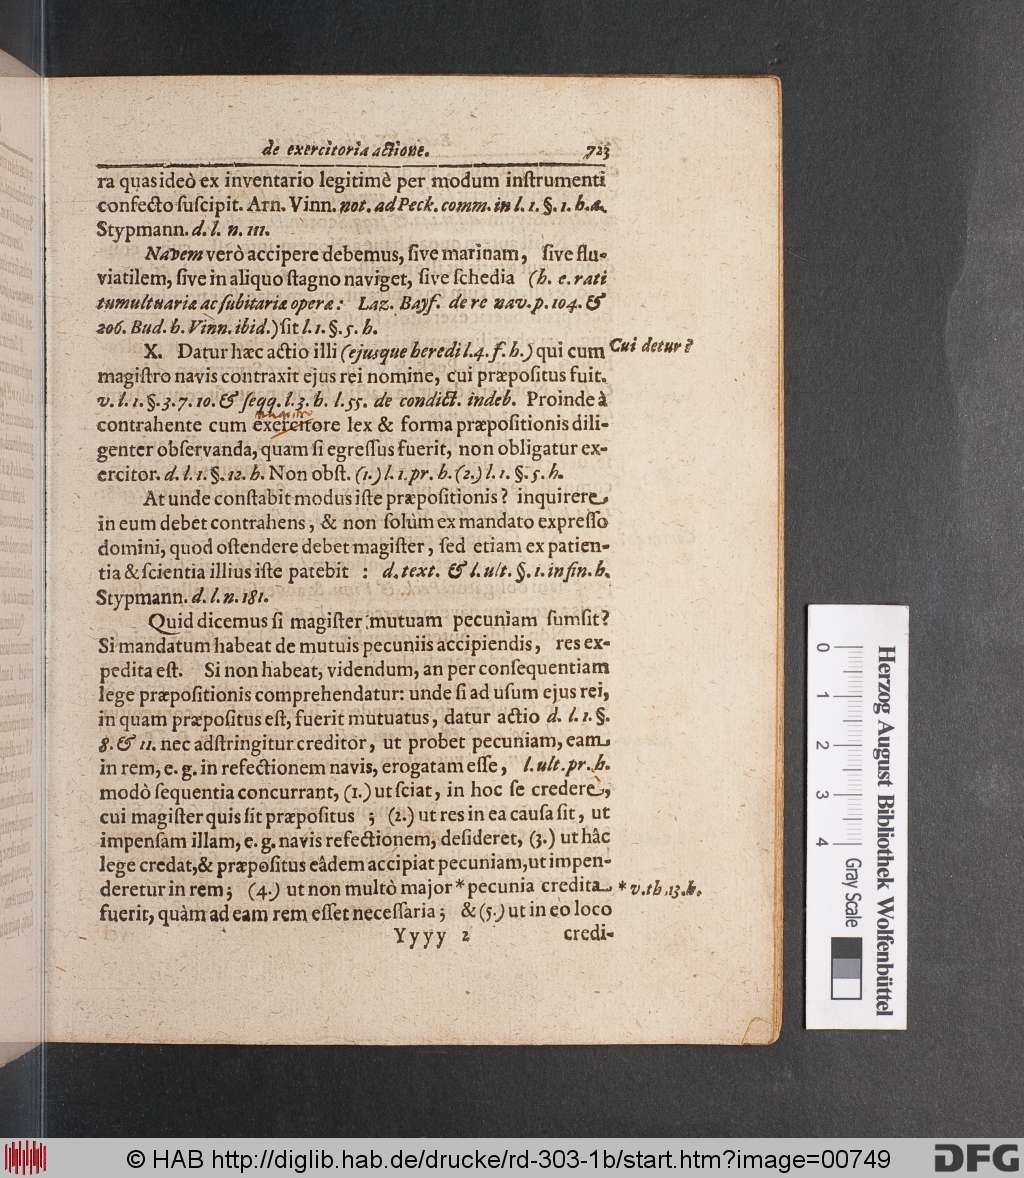 de exercitoria actione. 723
ra quas ideò ex inventario legitimè per modum inſtrumenti
confecto ſuſcipit. Arn. Vinn. not. ad Peck. comm. in l. 1. §. 1. h. a.
Stypmann. d. l. n. 111.
Navem verò accipere debemus, ſive marinam, ſive flu-
viatilem, ſive in aliquo ſtagno naviget, ſive ſchedia (h. e. rati
tumultuariæ ac ſubitariæ operæ: Laz. Bayf. de re nav. p. 104. &
206. Bud. h. Vinn. ibid.) ſit l. 1. §. 5. h.
X. Datur hæc actio illi (ejusque heredi l. 4. f. h.) qui cum
Cui detur?
magiſtro navis contraxit ejus rei nomine, cui præpoſitus fuit.
v. l. 1. §. 3. 7. 10. & ſeqq. l. 3. h. l. 55. de condict. indeb. Proinde à
magistro
contrahente cum exercitore lex & forma præpoſitionis dili-
genter obſervanda, quam ſi egreſſus fuerit, non obligatur ex-
ercitor. d. l. 1. §. 12. h. Non obſt. (1.) l. 1. pr. h. (2.) l. 1. §. 5. h.
At unde conſtabit modus iſte præpoſitionis? inquirere
in eum debet contrahens, & non ſolùm ex mandato expreſſo
domini, quod oſtendere debet magiſter, ſed etiam ex patien-
tia & ſcientia illius iſte patebit : d. text. & l. ult. §. 1. in fin. h.
Stypmann. d. l. n. 181.
Quid dicemus ſi magiſter mutuam pecuniam ſumſit?
Si mandatum habeat de mutuis pecuniis accipiendis, res ex-
pedita eſt. Si non habeat, videndum, an per conſequentiam
lege præpoſitionis comprehendatur: unde ſi ad uſum ejus rei,
in quam præpoſitus eſt, fuerit mutuatus, datur actio d. l. 1. §.
8. & 11. nec adſtringitur creditor, ut probet pecuniam, eam
in rem, e. g. in refectionem navis, erogatam eſſe, l. ult. pr. h.
modò ſequentia concurrant, (1.) ut ſciat, in hoc ſe credere,
cui magiſter quis ſit præpoſitus ; (2.) ut res in ea cauſa ſit, ut
impenſam illam, e. g. navis refectionem, deſideret, (3.) ut hâc
lege credat, & præpoſitus eâdem accipiat pecuniam, ut impen-
deretur in rem; (4.) ut non multò major * pecunia credita
* v. th. 13. h.
fuerit, quàm ad eam rem eſſet neceſſaria; & (5.) ut in eo loco
Yyyy 2 credi-
0 1 2 3 4
Gray Scale
Herzog August Bibliothek Wolfenbüttel
© HAB http://diglib.hab.de/drucke/rd-303-1b/start.htm?image=00749
DFG